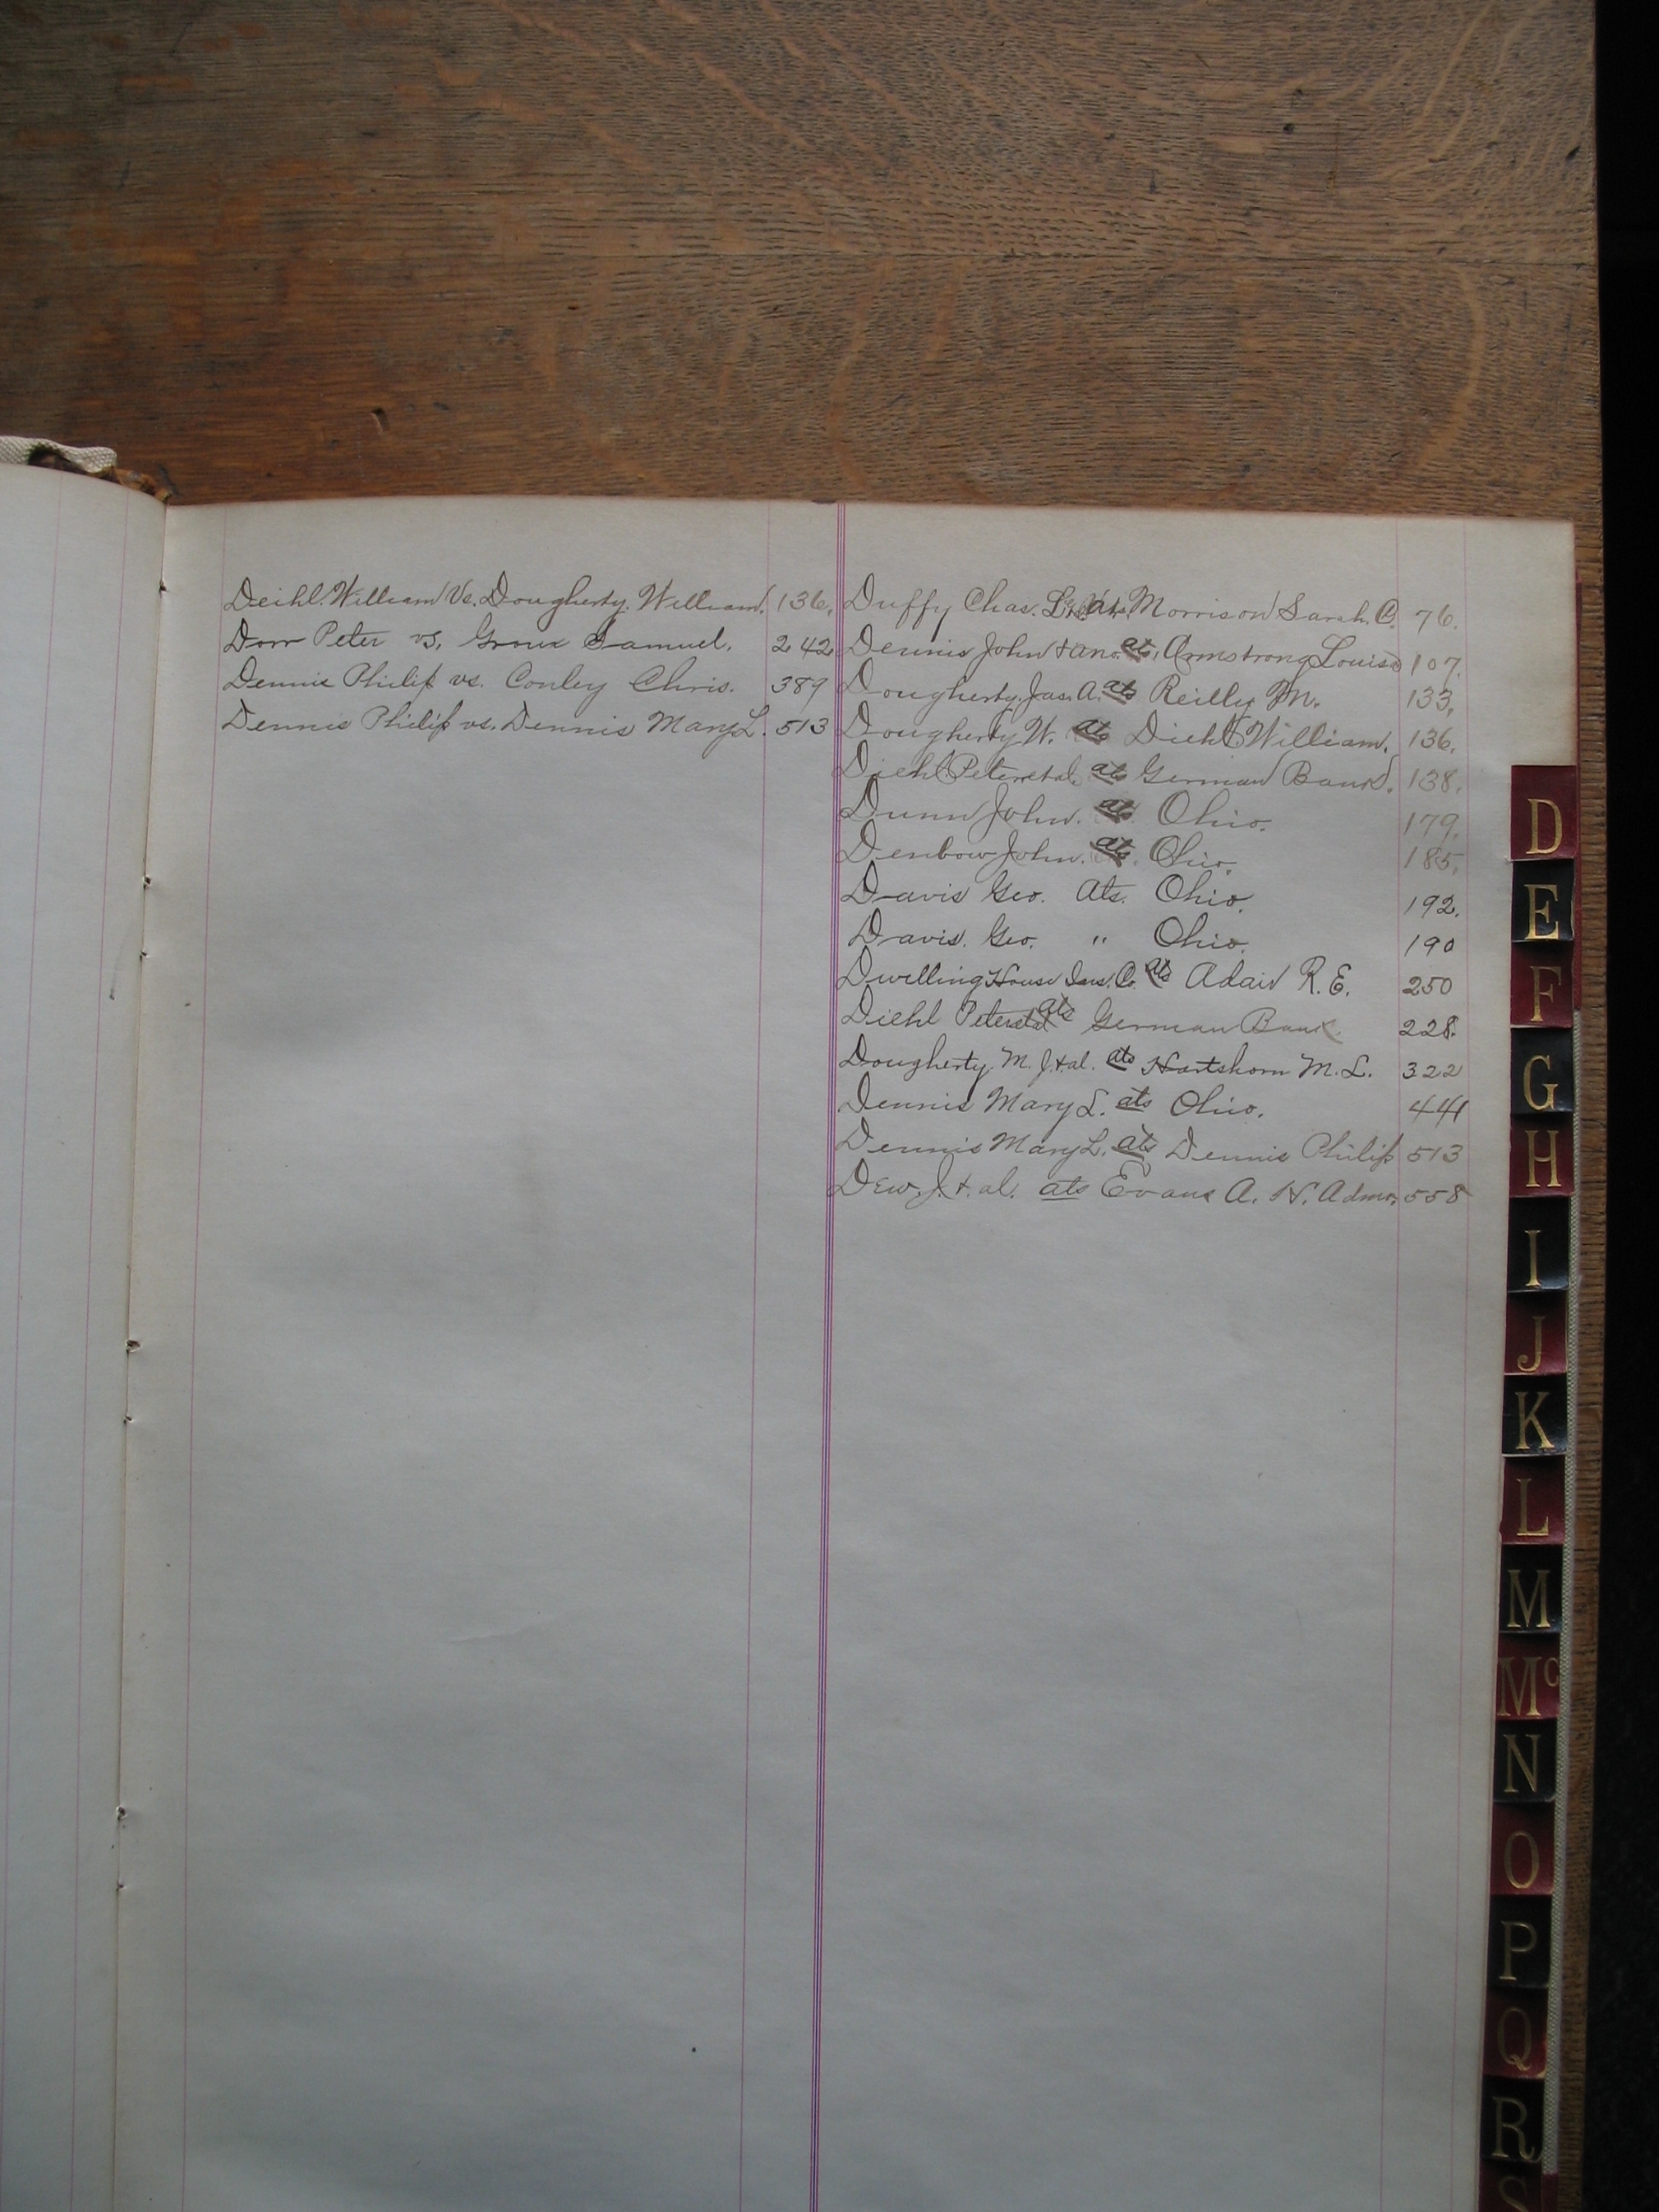 Deihl. William Vs. Dougherty. William. 136.
Dorr Peter vs. Groux Samuel. 242
Dennis Philip vs. Conley Chris. 389
Dennis Philip vs. Dennis Mary L. 513
Duffy Chas. ats. Morrison Sarah. C. 76.
Dennis John + ano. ats. Armstrong Louisa 107.
Dougherty. Jas. A. ats Reilly M. 133.
Dougherty W. ats Diehl William. 136.
Diehl Peter et al. ats German Bank. 138.
Dunn John. ats Ohio. 179.
Denbow John. ats. Ohio. 185.
Davis Geo. Ats. Ohio. 192.
Davis. Geo. " Ohio. 190
Dwelling House Ins. Co. ats Adair R. E. 250
Diehl Peter et al ats German Bank. 228.
Dougherty M. J. + al. ats Hartshorn M. L. 322
Dennis Mary L. ats Ohio. 441
Dennis Mary L. ats Dennis Philip 513
Dew. J. + al. ats Evans A. N. Admr. 558
D
E
F
G
H
I
J
K
L
M
Mc
N
O
P
Q
R
S